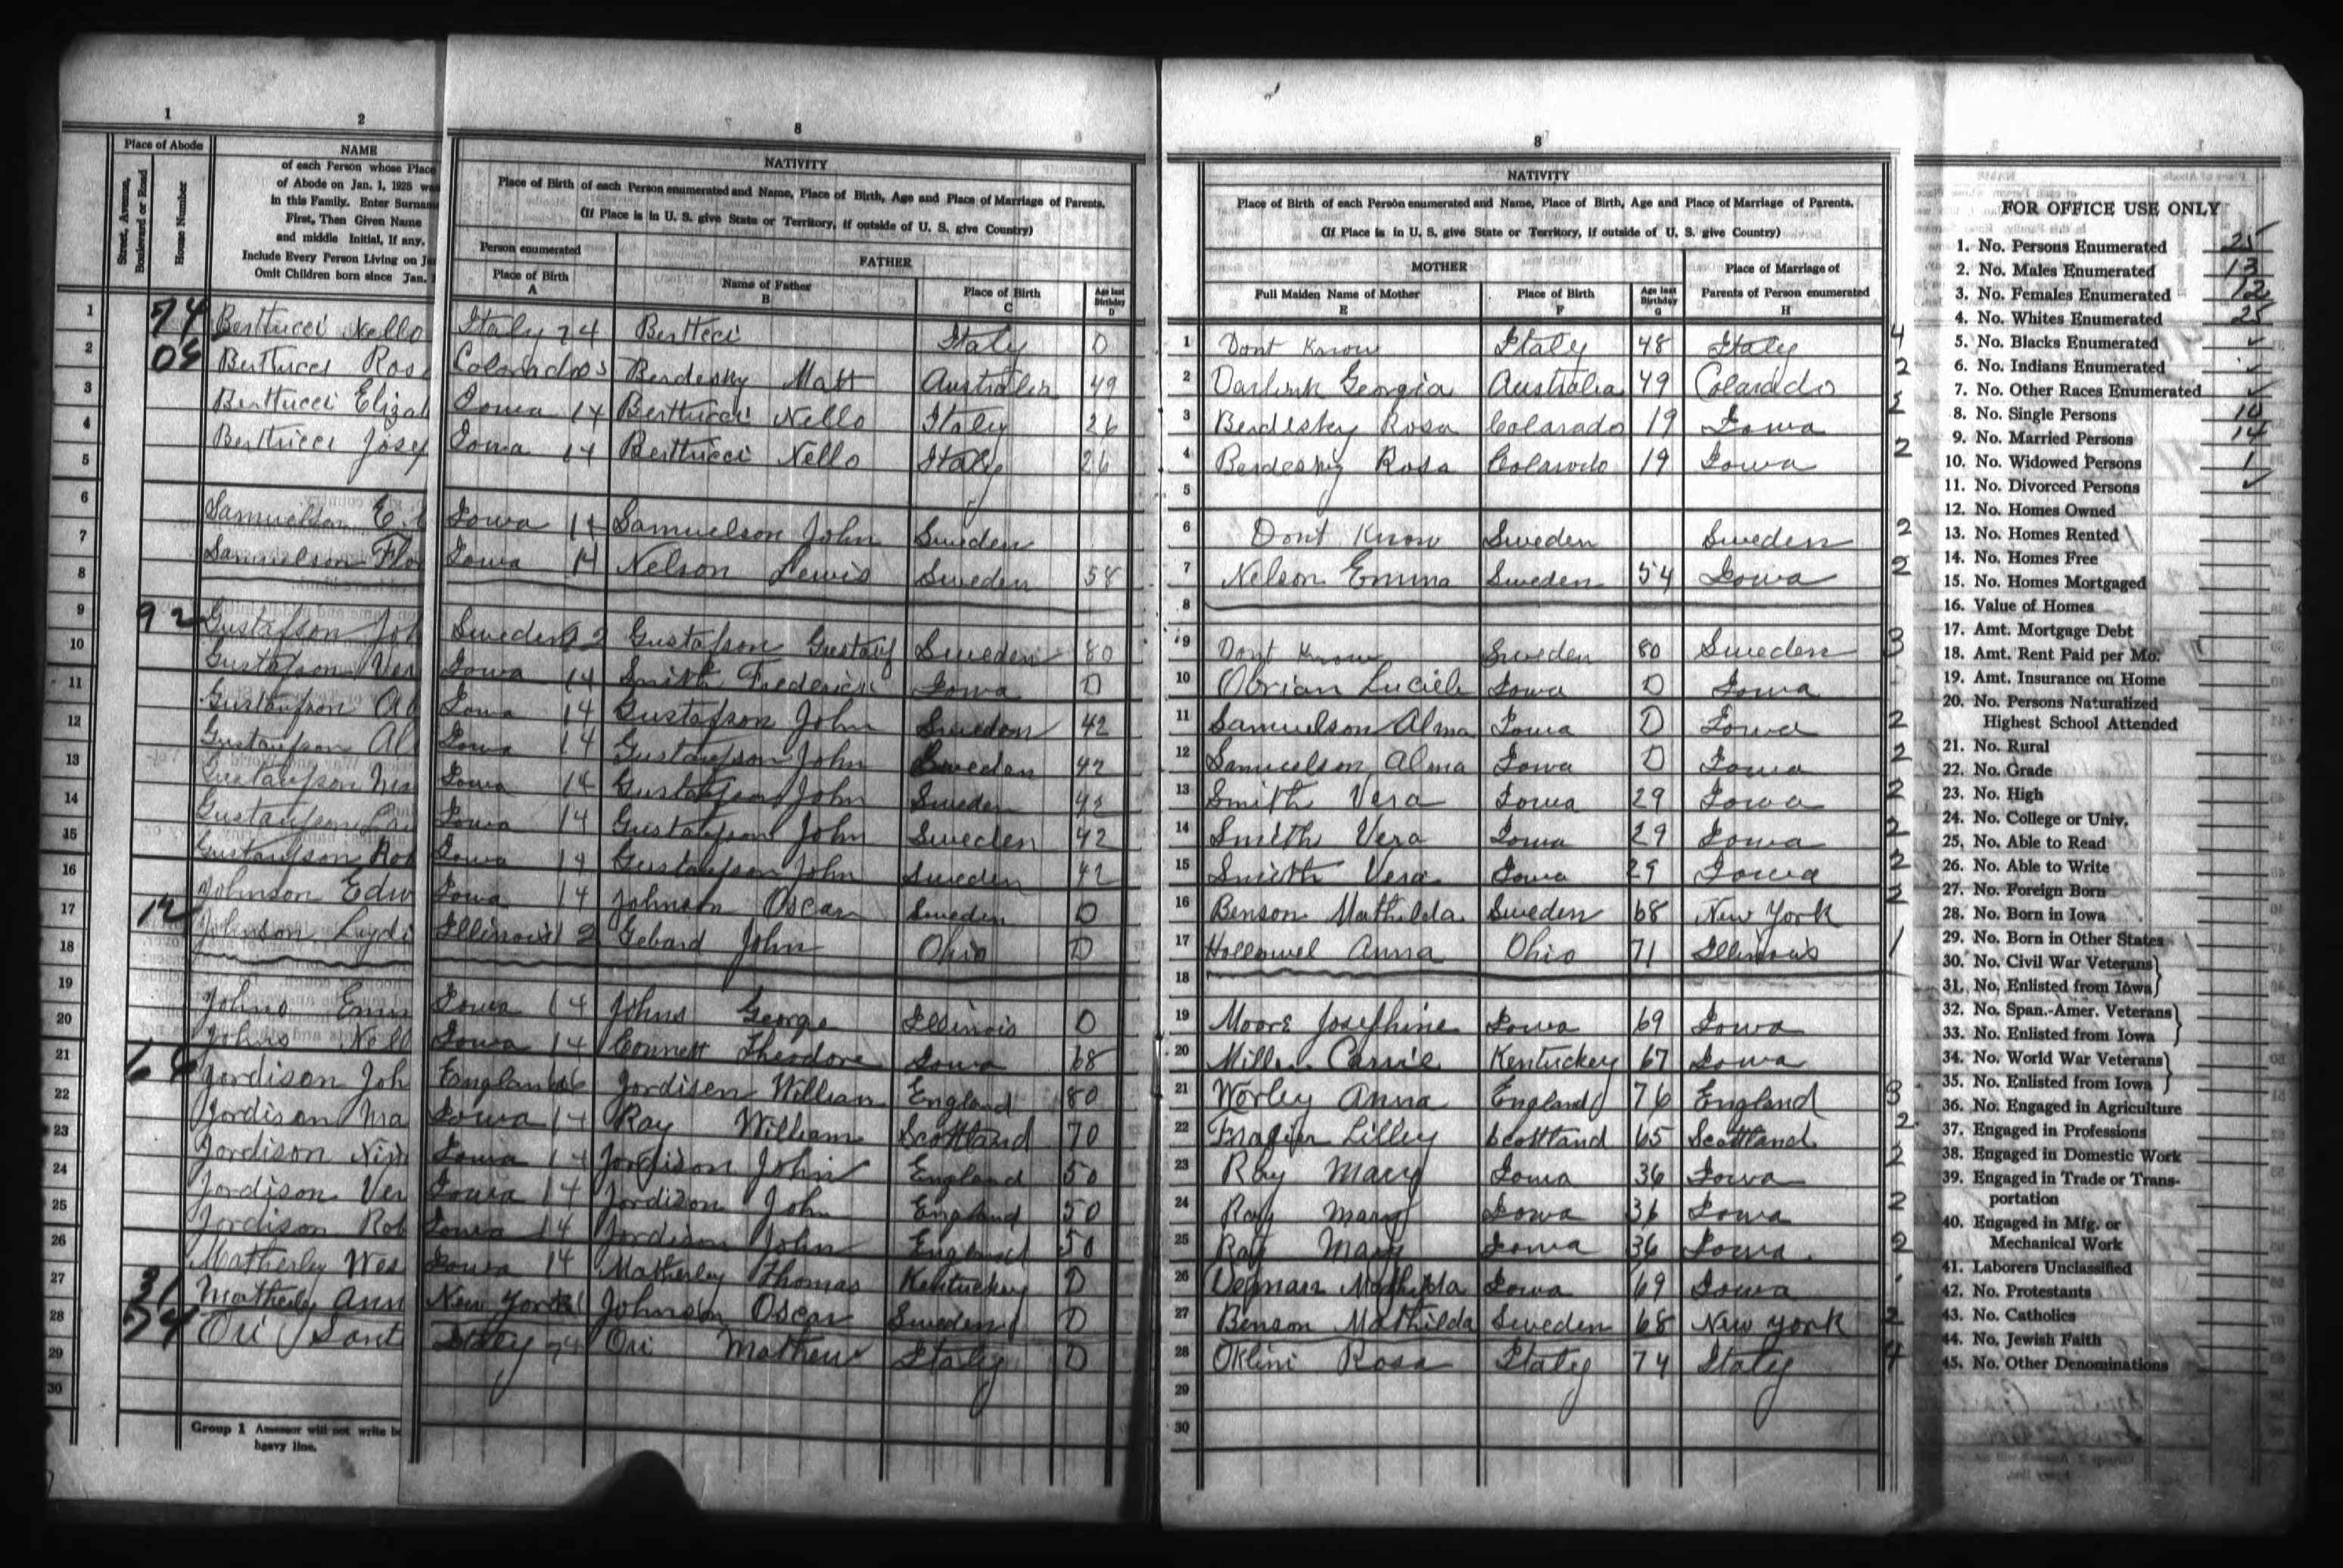 1 2 8 8
Place of Abode
Street, Avenue, Boulevard or Road
Home Number
NAME
of each Person whose Place
of Abode on Jan. 1, 1925 was
in this Family. Enter Surname
First, Then Given Name
and middle Initial, If any.
Include Every Person Living on Ja
Omit Children born since Jan.
NATIVITY
Place of Birth of each Person enumerated and Name, Place of Birth, Age and Place of Marriage of Parents.
(If Place is in U. S. give State or Territory, if outside of U. S. give Country)
Person enumerated
FATHER
Place of Birth A
Name of Father B
Place of Birth C
Age last Birthday D
NATIVITY
Place of Birth of each Person enumerated and Name, Place of Birth, Age and Place of Marriage of Parents.
(If Place is in U. S. give State or Territory, if outside of U. S. give Country)
MOTHER
Full Maiden Name of Mother E
Place of Birth F
Age last Birthday G
Place of Marriage of Parents of Person enumerated H
1 74 Berttucci Nello Italy 74 Bertteci Italy D 1 Dont Know Italy 48 Italy 4
2 05 Berttucci Rosa Colorado 05 Berdesky Matt Australia 49 2 Georgia Australia 49 Colarado 2
3 Berttucci Elizab Iowa 14 Berttucci Nello Italy 26 3 Berdesky Rosa Colarado 19 Iowa 2
4 Berttucci Josep Iowa 14 Berttucci Nello Italy 26 4 Berdesky Rosa Colarado 19 Iowa 2
5 5
6 Samuelson E. Iowa 14 Samuelson John Sweden 6 Dont Know Sweden Sweden 2
7 Samuelson Flo Iowa 14 Nelson Lewis Sweden 58 7 Nelson Emma Sweden 54 Iowa 2
8 8
9 92 Gustafson Joh Sweden 92 Gustafson Gustaf Sweden 80 9 Dont Know Sweden 80 Sweden 3
10 Gustafson Ver Iowa 14 Smith Frederick Iowa D 10 Obrian Luciele Iowa D Iowa
11 Gustaufson Al Iowa 14 Gustafson John Sweden 42 11 Samuelson Alma Iowa D Iowa 2
12 Gustaufson Al Iowa 14 Gustaufson John Sweden 42 12 Samuelson Alma Iowa D Iowa 2
13 Gustaufson Iowa 14 Gustaufson John Sweden 42 13 Smith Vera Iowa 29 Iowa 2
14 Gustaufson Iowa 14 Gustaufson John Sweden 42 14 Smith Vera Iowa 29 Iowa 2
15 Gustaufson Rob Iowa 14 Gustaufson John Sweden 42 15 Smith Vera Iowa 29 Iowa 2
16 Johnson Edw Iowa 14 Johnson Oscar Sweden D 16 Benson Mathilda Sweden 68 New York 2
17 12 Johnson Lydi Illinois 12 Gebard John Ohio D 17 Hollowel Anna Ohio 71 Illinois 1
18 18
19 Johns Emm Iowa 14 Johns George Illinois D 19 Moore Josephine Iowa 69 Iowa
20 Johns Nell Iowa 14 Connett Theodore Iowa 68 20 Miller Carrie Kentuckey 67 Iowa
21 66 Jordison Joh England 66 Jordisen William England 80 21 Worley Anna England 76 England 3
22 Jordison Ma Iowa 14 Ray William Scottland 70 22 Frazier Lilley Scottland 65 Scottland 2
23 Jordison Iowa 14 Jordison John England 50 23 Ray Mary Iowa 36 Iowa 2
24 Jordison Ver Iowa 14 Jordison John England 50 24 Ray Mary Iowa 36 Iowa 2
25 Jordison Rob Iowa 14 Jordison John England 50 25 Ray Mary Iowa 36 Iowa 2
26 Matherley Wes Iowa 14 Matherley Thomas Kentuckey D 26 Mathilda Iowa 69 Iowa
27 31 Matherley Ann New York 31 Johnson Oscar Sweden D 27 Benson Mathilda Sweden 68 New York 2
28 74 Ori Sant Italy 74 Ori Mathew Italy D 28 Oklini Rosa Italy 74 Italy 4
29 29
30 30
Group 1 Assessor will not write be
heavy line.
FOR OFFICE USE ONLY
1. No. Persons Enumerated 25
2. No. Males Enumerated 13
3. No. Females Enumerated 12
4. No. Whites Enumerated 25
5. No. Blacks Enumerated ✓
6. No. Indians Enumerated ✓
7. No. Other Races Enumerated ✓
8. No. Single Persons 10
9. No. Married Persons 14
10. No. Widowed Persons 1
11. No. Divorced Persons ✓
12. No. Homes Owned
13. No. Homes Rented
14. No. Homes Free
15. No. Homes Mortgaged
16. Value of Homes
17. Amt. Mortgage Debt
18. Amt. Rent Paid per Mo.
19. Amt. Insurance on Home
20. No. Persons Naturalized
Highest School Attended
21. No. Rural
22. No. Grade
23. No. High
24. No. College or Univ.
25. No. Able to Read
26. No. Able to Write
27. No. Foreign Born
28. No. Born in Iowa
29. No. Born in Other States
30. No. Civil War Veterans
31. No. Enlisted from Iowa
32. No. Span.-Amer. Veterans
33. No. Enlisted from Iowa
34. No. World War Veterans
35. No. Enlisted from Iowa
36. No. Engaged in Agriculture
37. Engaged in Professions
38. Engaged in Domestic Work
39. Engaged in Trade or Trans-
portation
40. Engaged in Mfg. or
Mechanical Work
41. Laborers Unclassified
42. No. Protestants
43. No. Catholics
44. No. Jewish Faith
45. No. Other Denominations